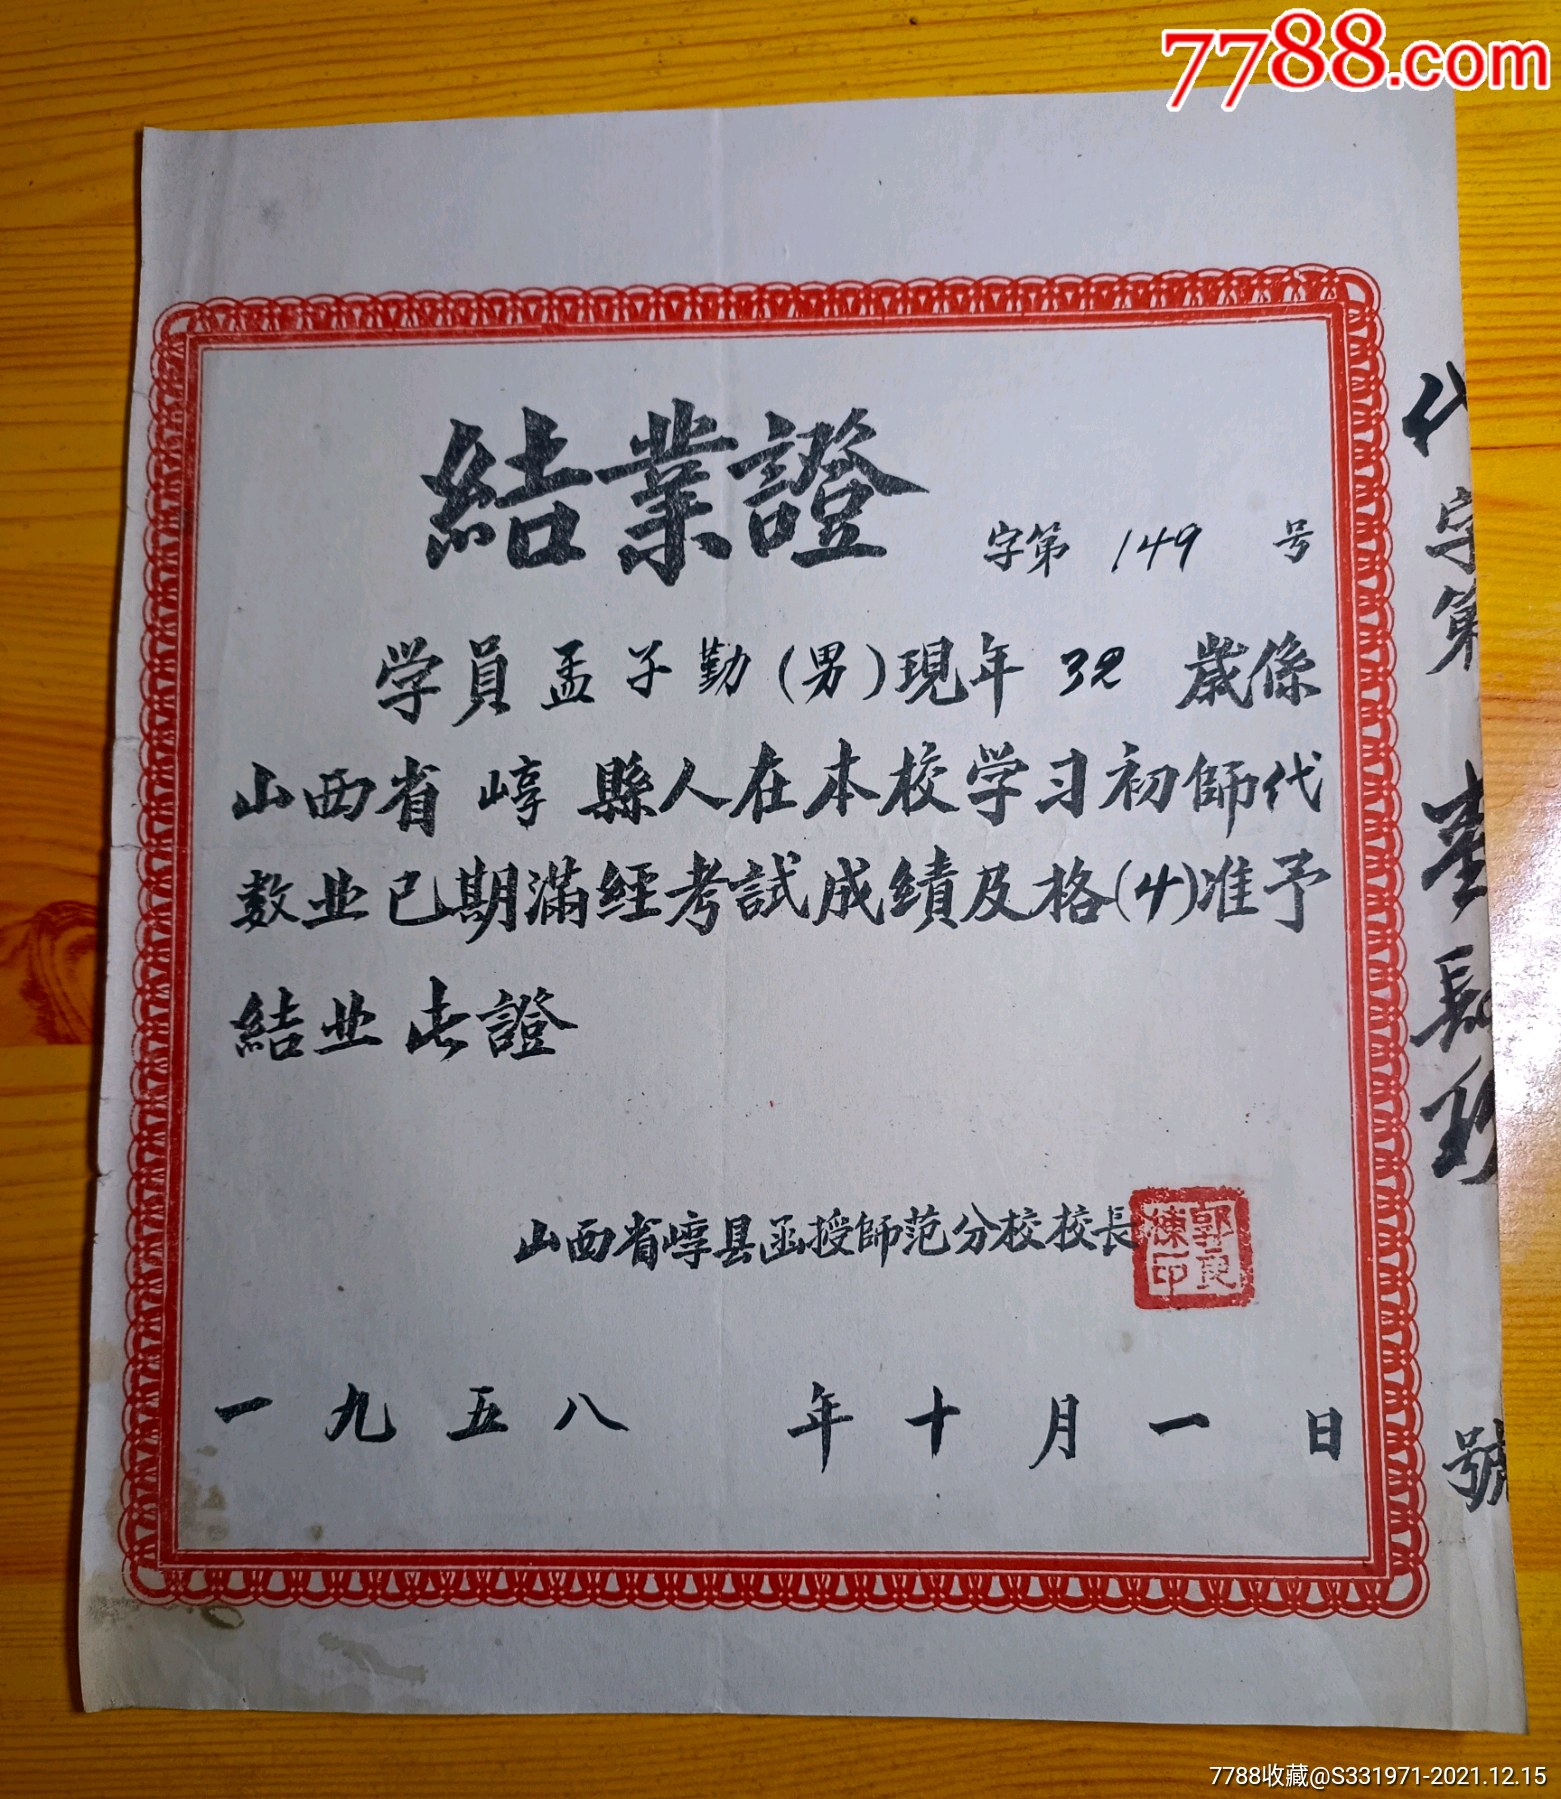 7788.com
結業證
字第 149 号
学員孟子勤(男)現年 32 歲係
山西省 崞 縣人在本校学习初師代
数业已期滿經考試成績及格(4)准予
結业此證
山西省崞县函授師范分校校長
郭良棟印
一九五八 年十月一日
字第
號
7788收藏@S331971-2021.12.15